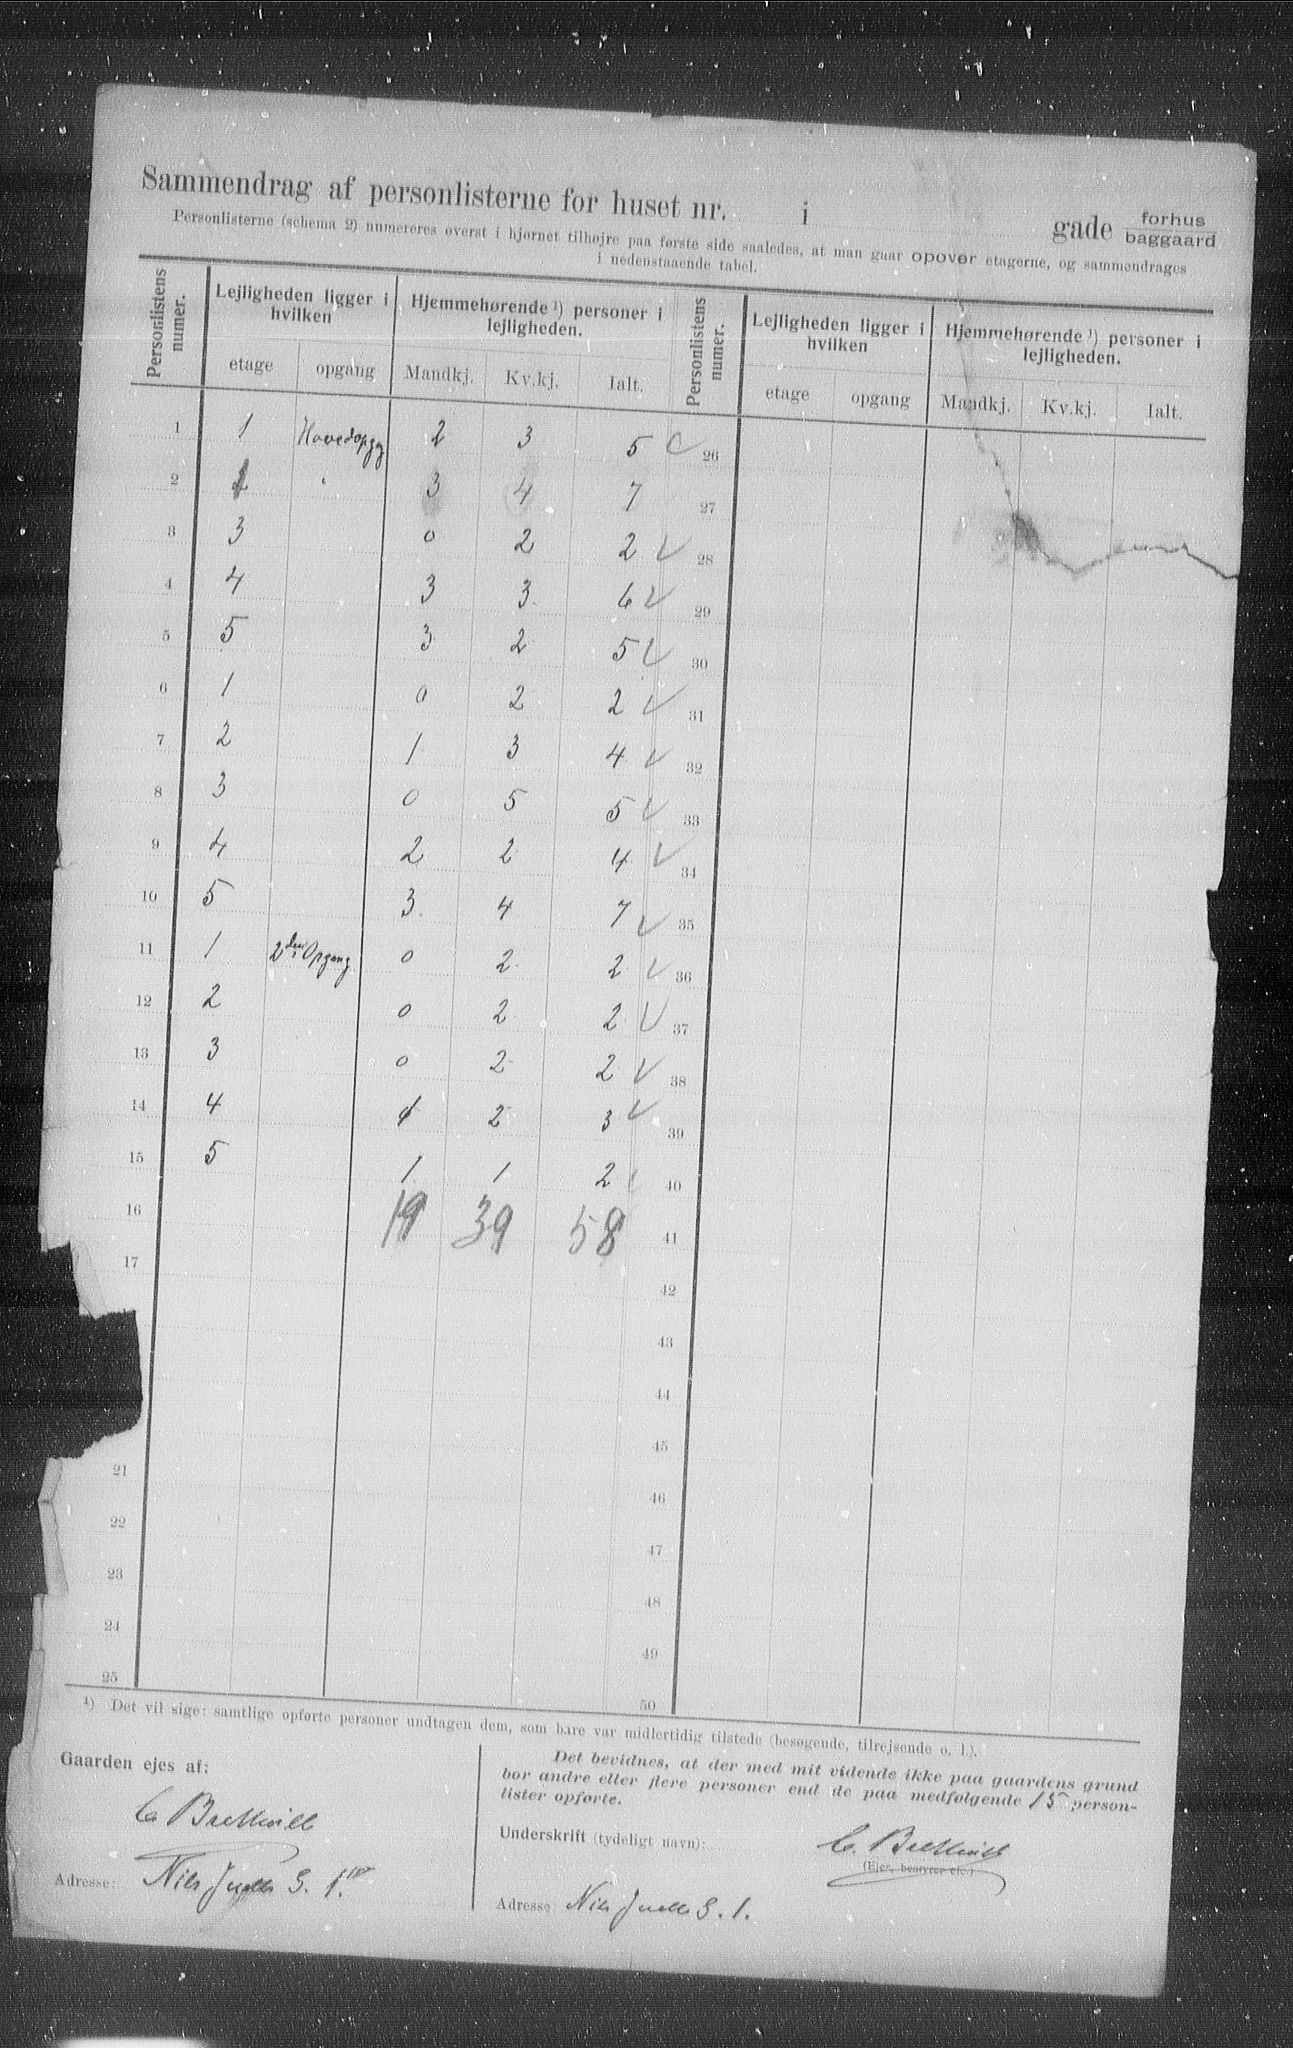 Sammendrag af personlisterne for huset nr. i gade forhus
baggaard
Personlisterne (schema 2) numereres øverst i hjørnet tilhøjre paa første side saaledes, at man gaar opover etagerne, og sammendrages
i nedenstaaende tabel.
Personlistens numer. Lejligheden ligger i hvilken Hjemmehørende ¹) personer i lejligheden. Personlistens numer. Lejligheden ligger i hvilken Hjemmehørende ¹) personer i lejligheden.
etage opgang Mandkj. Kv.kj. Ialt. etage opgang Mandkj. Kv.kj. Ialt.
1 1 Hovedopgg 2 3 5 26
2 2 3 4 7 27
3 3 0 2 2 28
4 4 3 3 6 29
5 5 3 2 5 30
6 1 0 2 2 31
7 2 1 3 4 32
8 3 0 5 5 33
9 4 2 2 4 34
10 5 3 4 7 35
11 1 2den Opgang 0 2 2 36
12 2 0 2 2 37
13 3 0 2 2 38
14 4 1 2 3 39
15 5 1 1 2 40
16 19 39 58 41
17 42
43
44
45
21 46
22 47
23 48
24 49
25 50
¹) Det vil sige: samtlige opførte personer undtagen dem, som bare var midlertidig tilstede (besøgende, tilrejsende o. l.).
Gaarden ejes af:
Adresse: Niels Juels G. 1
Det bevidnes, at der med mit vidende ikke paa gaardens grund
bor andre eller flere personer end de paa medfølgende 15 person-
lister opførte.
Underskrift (tydeligt navn):
(Ejer, bestyrer etc.)
Adresse Niels Juels G. 1.